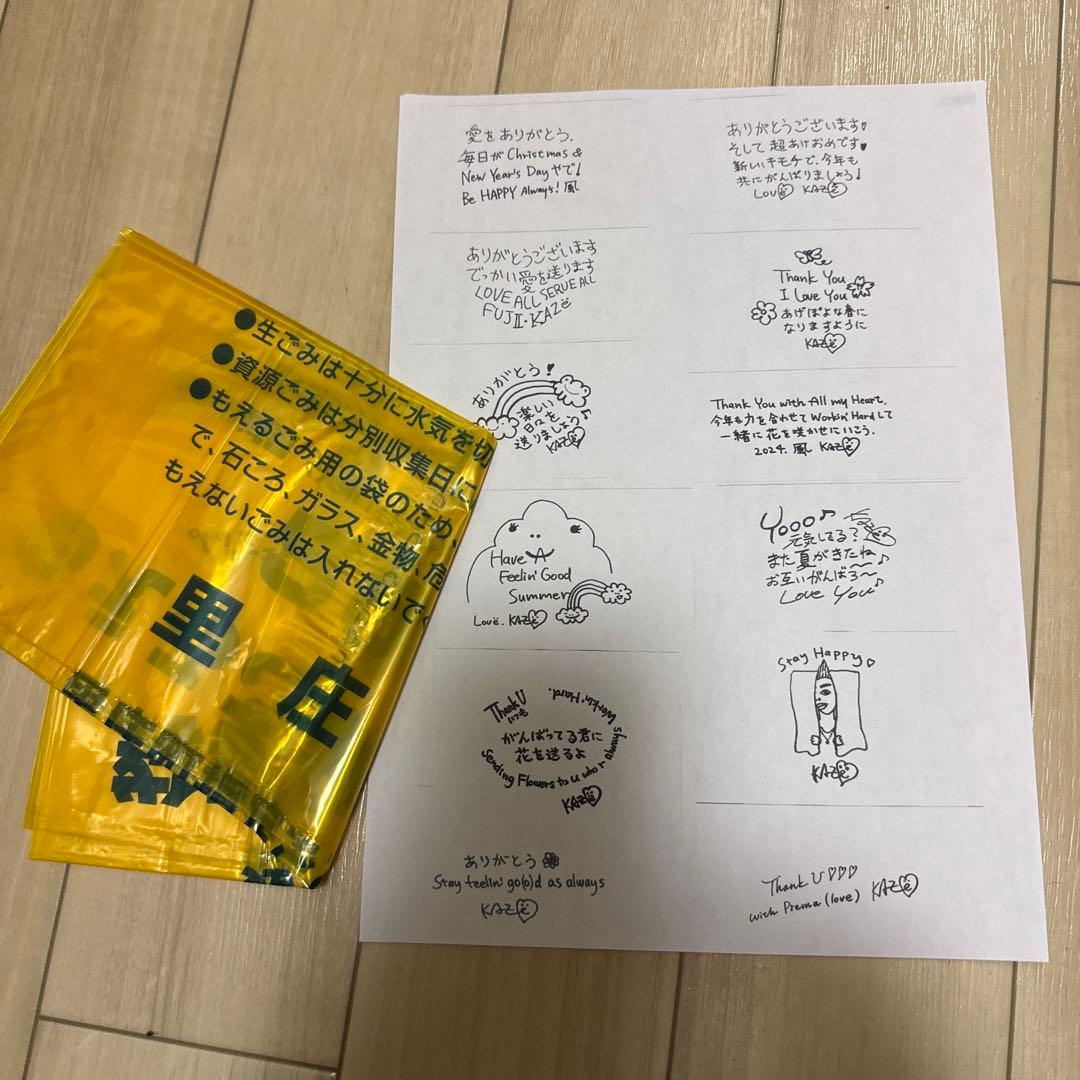 ●生ごみは十分に水気を切
●資源ごみは分別収集日に
●もえるごみ用の袋のため、
で、石ころ、ガラス、金物、危
もえないごみは入れないでく
里 庄
愛をありがとう.
毎日が Christmas &
New Year's Day やで!
Be HAPPY Always! 風
ありがとうございます♥
そして 超あけおめです♥
新しいキモチで、今年も
共にがんばりましょう!
Love KAZE
ありがとうございます
でっかい愛を送ります
LOVE ALL SERVE ALL
FUJII・KAZE
Thank You
I Love You
あげぽよな春に
なりますように
KAZE
ありがとう!
楽しい
日々を
送りましょう♪
KAZE
Thank You with All my Heart.
今年も力を合わせて Workin' Hard して
一緒に花を咲かせにいこう.
2024. 風 KAZE
Have A
Feelin' Good
Summer
Love. KAZE
Yooo♪
元気してる?
また夏がきたね〜
お互いがんばろ〜♪
Love You
Thank U
いつも
がんばってる君に
花を送るよ
Sending Flowers to u who r always
Workin' Hard.
KAZE
Stay Happy♡
KAZE
ありがとう
Stay feelin' go(o)d as always
KAZE
Thank U♡♡♡
with Prema (love) KAZE